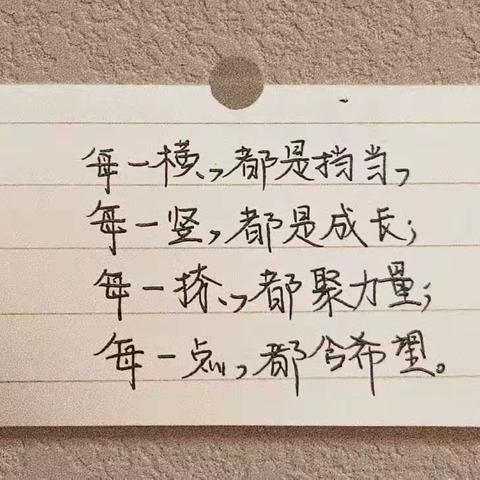 每一横、,都是挡当,
每一竖,都是成长;
每一捺、,都聚力量;
每一点,都含希望。